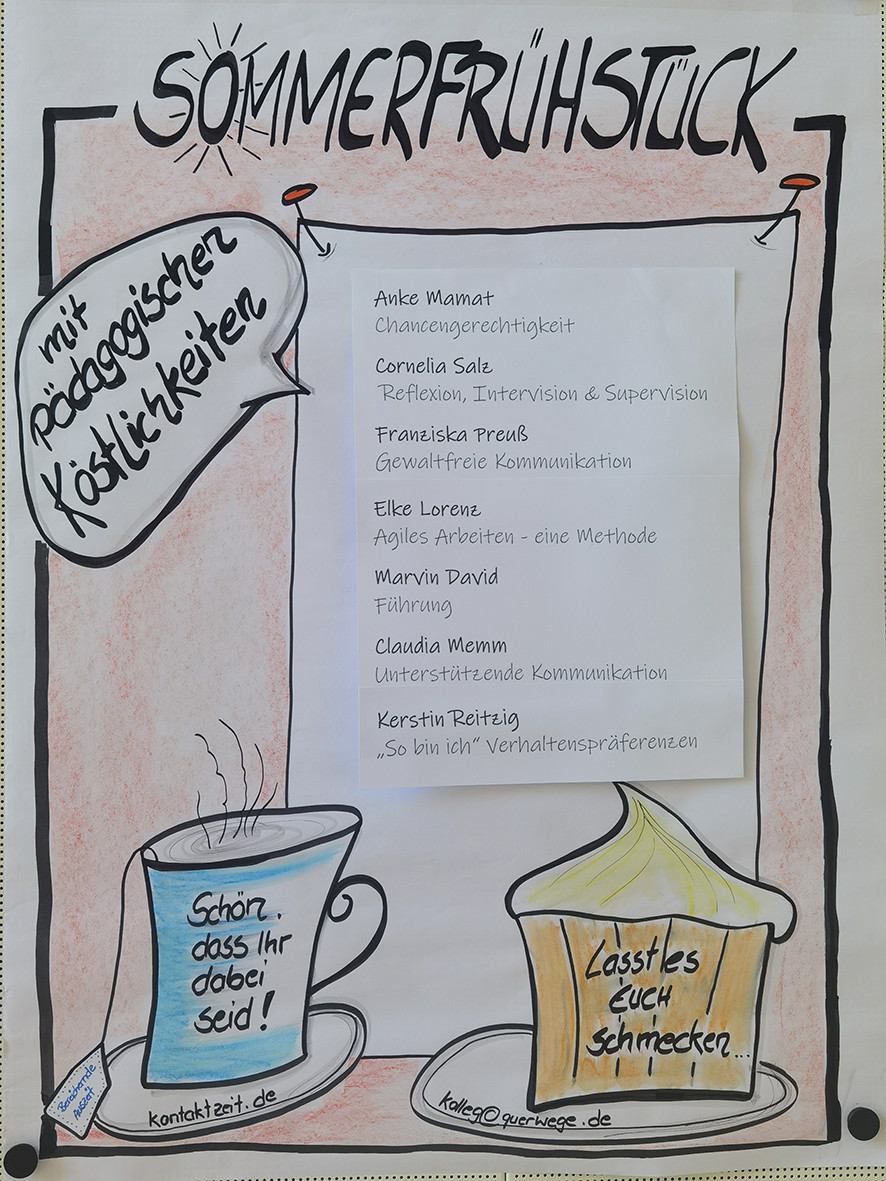 SOMMERFRÜHSTÜCK
mit
pädagogischen
Köstlichkeiten
Anke Mamat
Chancengerechtigkeit
Cornelia Salz
Reflexion, Intervision & Supervision
Franziska Preuß
Gewaltfreie Kommunikation
Elke Lorenz
Agiles Arbeiten - eine Methode
Marvin David
Führung
Claudia Memm
Unterstützende Kommunikation
Kerstin Reitzig
„So bin ich“ Verhaltenspräferenzen
Schön,
dass Ihr
dabei
seid!
Bereichernde
Auszeit
kontaktzeit.de
Lasst es
EUCH
schmecken...
kolleg@querwege.de